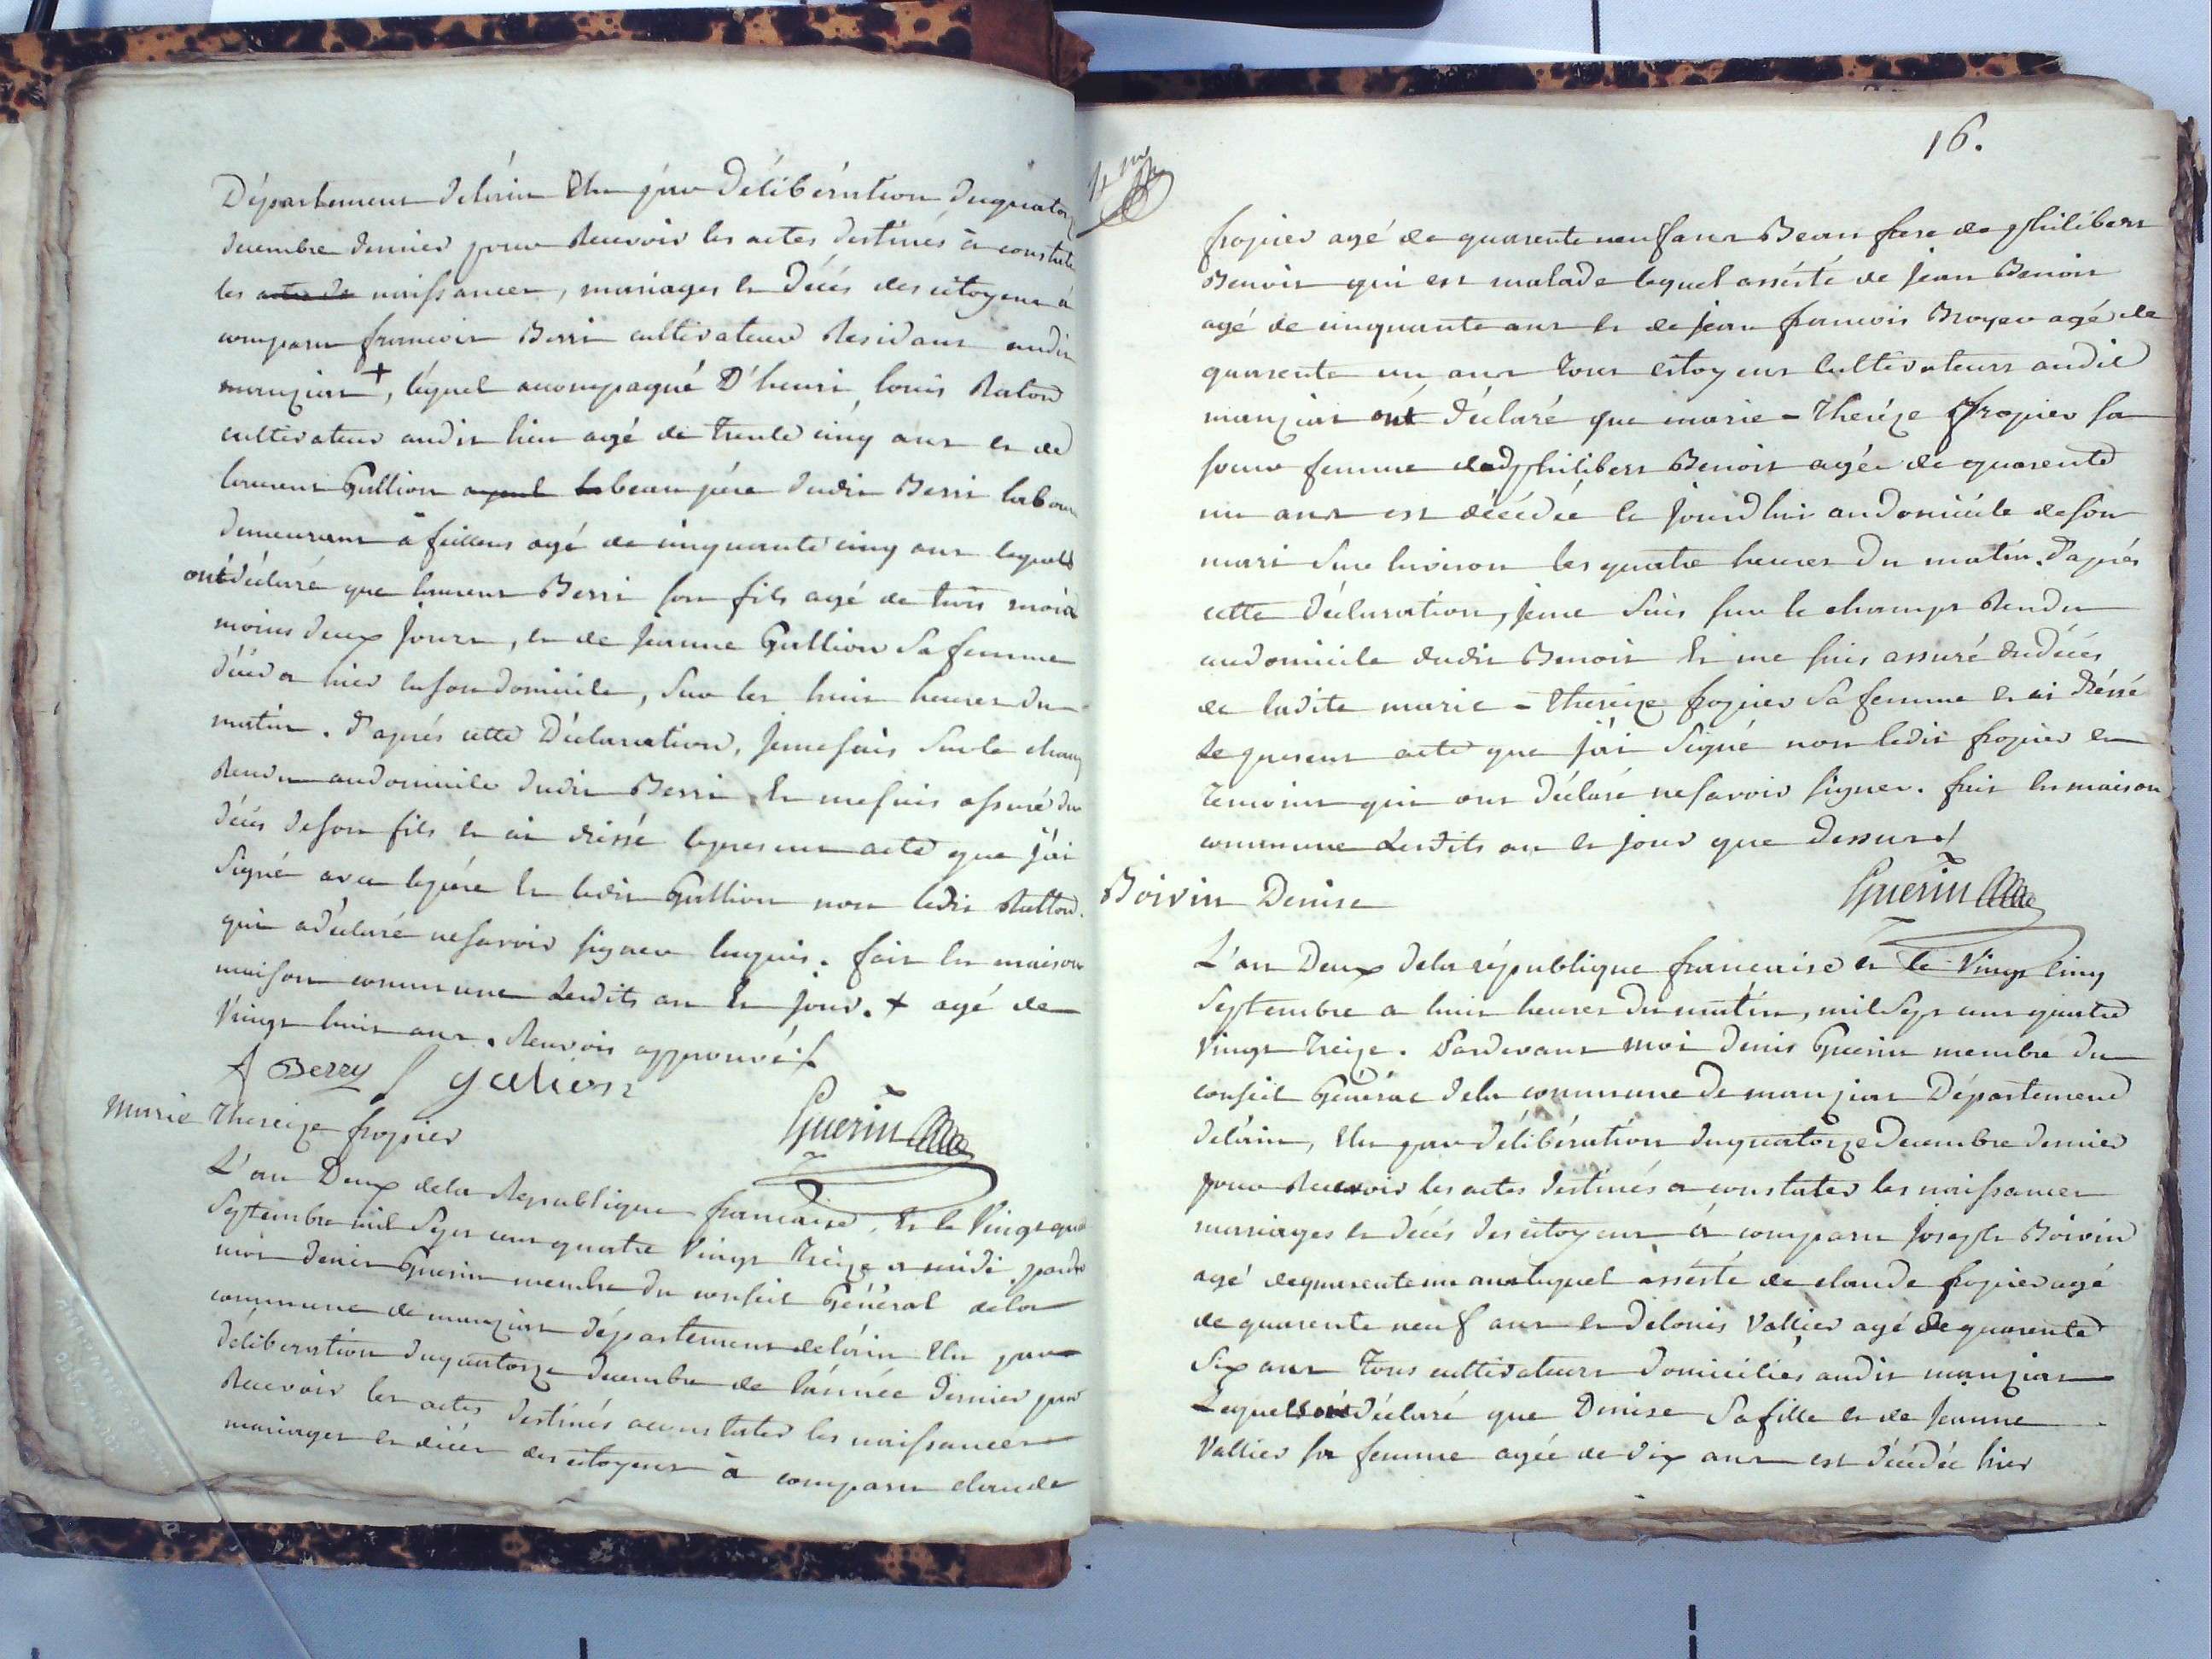 Département delâin Elu par Délibération duquator
decembre dernier pour Recevoir les actes destinés à constate
les actes de naissances, mariages et Décés des citoyens à
comparu francois Berri cultivateur Residant audit
manziat +, lequel acompagné D'henri louis Raton
cultivateur audit lieu agé de trente cinq ans et de
laurent Gallion ayeul le beaupére dudit Berri labou
demeurant à feillens agé de cinquante cinq ans lequels
ont déclaré que laurent Berri son fils agé de trois mois
moins deux jours, et de jeanne Gallion Sa femme
décéda hier en son domicile, Sur les huit heures du
matin. D'aprés cette Déclaration, jemesuis Surle champ
Rendu audomicile dudit Berri Et mesuis assuré du
décés deson fils et ai dréssé lepresent acte que j'ai
Signé avec lepére et ledit Gallion non ledit Ratton
qui adéclaré nesavoir signer enquis. fait en maison
maison commune Lesdits an et jour. + agé de
Vingt huit ans. Renvois approuvé./.
f Berry / galion
Guerin
Marie Thereize fropier
L'an Deux dela Republique francaise, et le Vingt qua
Septembre mil Sept cent quatre Vingt Treize a midi pard
moi denis Guerin membre du conseil Général dela
commune de manziat département delâin Elu par
déliberation duquatorze decembre de l'année dernier pour
Recevoir les actes destinés aconstater les naissances
mariages et décés des citoyens à comparu claude
16.
fropier agé de quarente neuf ans Beau frere de philibert
Benoit qui est malade lequel assisté de jean Benoit
agé de cinquante ans et de jean francois Broyer agé de
quarente un ans tous citoyens cultivateurs audit
manziat ont déclaré que marie - Theréze fropier sa
soeur femme dud philibert Benoit agée de quarente
un ans est décédée le jourdhui audomicile deson
mari Sur environ les quatre heures Du matin. D'aprés
cette Déclaration, jeme Suis sur le champs Rendu
audomicile dudit Benoit Et me suis assuré dudécés
de ladite marie - thereize fropier Sa femme et ai dréssé
le present acte que j'ai Signé non ledit fropier et
temoins qui ont déclaré nesavoir signer. fait en maison
commune Lesdits an et jour que dessus ./
Guerin
Boivin Denise
L'an Deux dela république francaise et le Vingt cinq
Septembre a huit heures du matin, mil Sept cent quatre
Vingt Treize. Pardevant moi denis Guerin membre du
conseil Général dela commune de manziat Département
delâin, Elu par délibération duquatorze Decembre dernier
pour Recevoir les actes destinés a constater les naissances
mariages et décés des citoyens à comparu joseph Boivin
agé dequarente un ans lequel assisté de claude fropier agé
de quarente neuf ans et delouis Vallier agé de quarente
Six ans tous cultivateurs domiciliés audit manziat
Lequels ont déclaré que Denise Sa fille et de jeanne
Vallier sa femme agée de dix ans est décédée hier